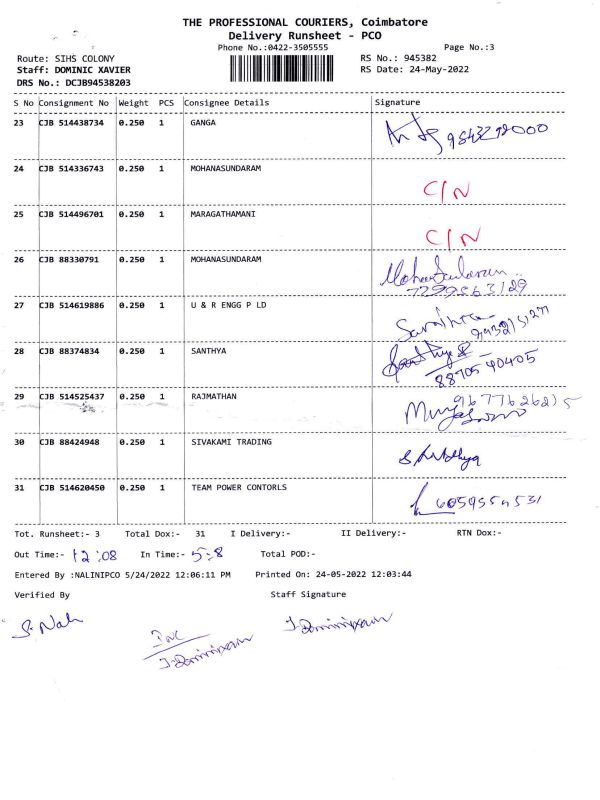 THE PROFESSIONAL COURIERS, Coimbatore
Delivery Runsheet - PCO
Phone No.:0422-3505555
Page No.:3
Route: SIHS COLONY
RS No.: 945382
Staff: DOMINIC XAVIER
RS Date: 24-May-2022
DRS No.: DCJB94538203
S No Consignment No Weight PCS Consignee Details Signature
23 CJB 514438734 0.250 1 GANGA
24 CJB 514336743 0.250 1 MOHANASUNDARAM
C/N
25 CJB 514496701 0.250 1 MARAGATHAMANI
C/N
26 CJB 88330791 0.250 1 MOHANASUNDARAM
27 CJB 514619886 0.250 1 U & R ENGG P LD
28 CJB 88374834 0.250 1 SANTHYA
88705 40405
29 CJB 514525437 0.250 1 RAJMATHAN
9677626215
30 CJB 88424948 0.250 1 SIVAKAMI TRADING
31 CJB 514620450 0.250 1 TEAM POWER CONTORLS
Tot. Runsheet:- 3 Total Dox:- 31 I Delivery:- II Delivery:- RTN Dox:-
Out Time:- 12:08 In Time:- 5:8 Total POD:-
Entered By :NALINIPCO 5/24/2022 12:06:11 PM Printed On: 24-05-2022 12:03:44
Verified By Staff Signature